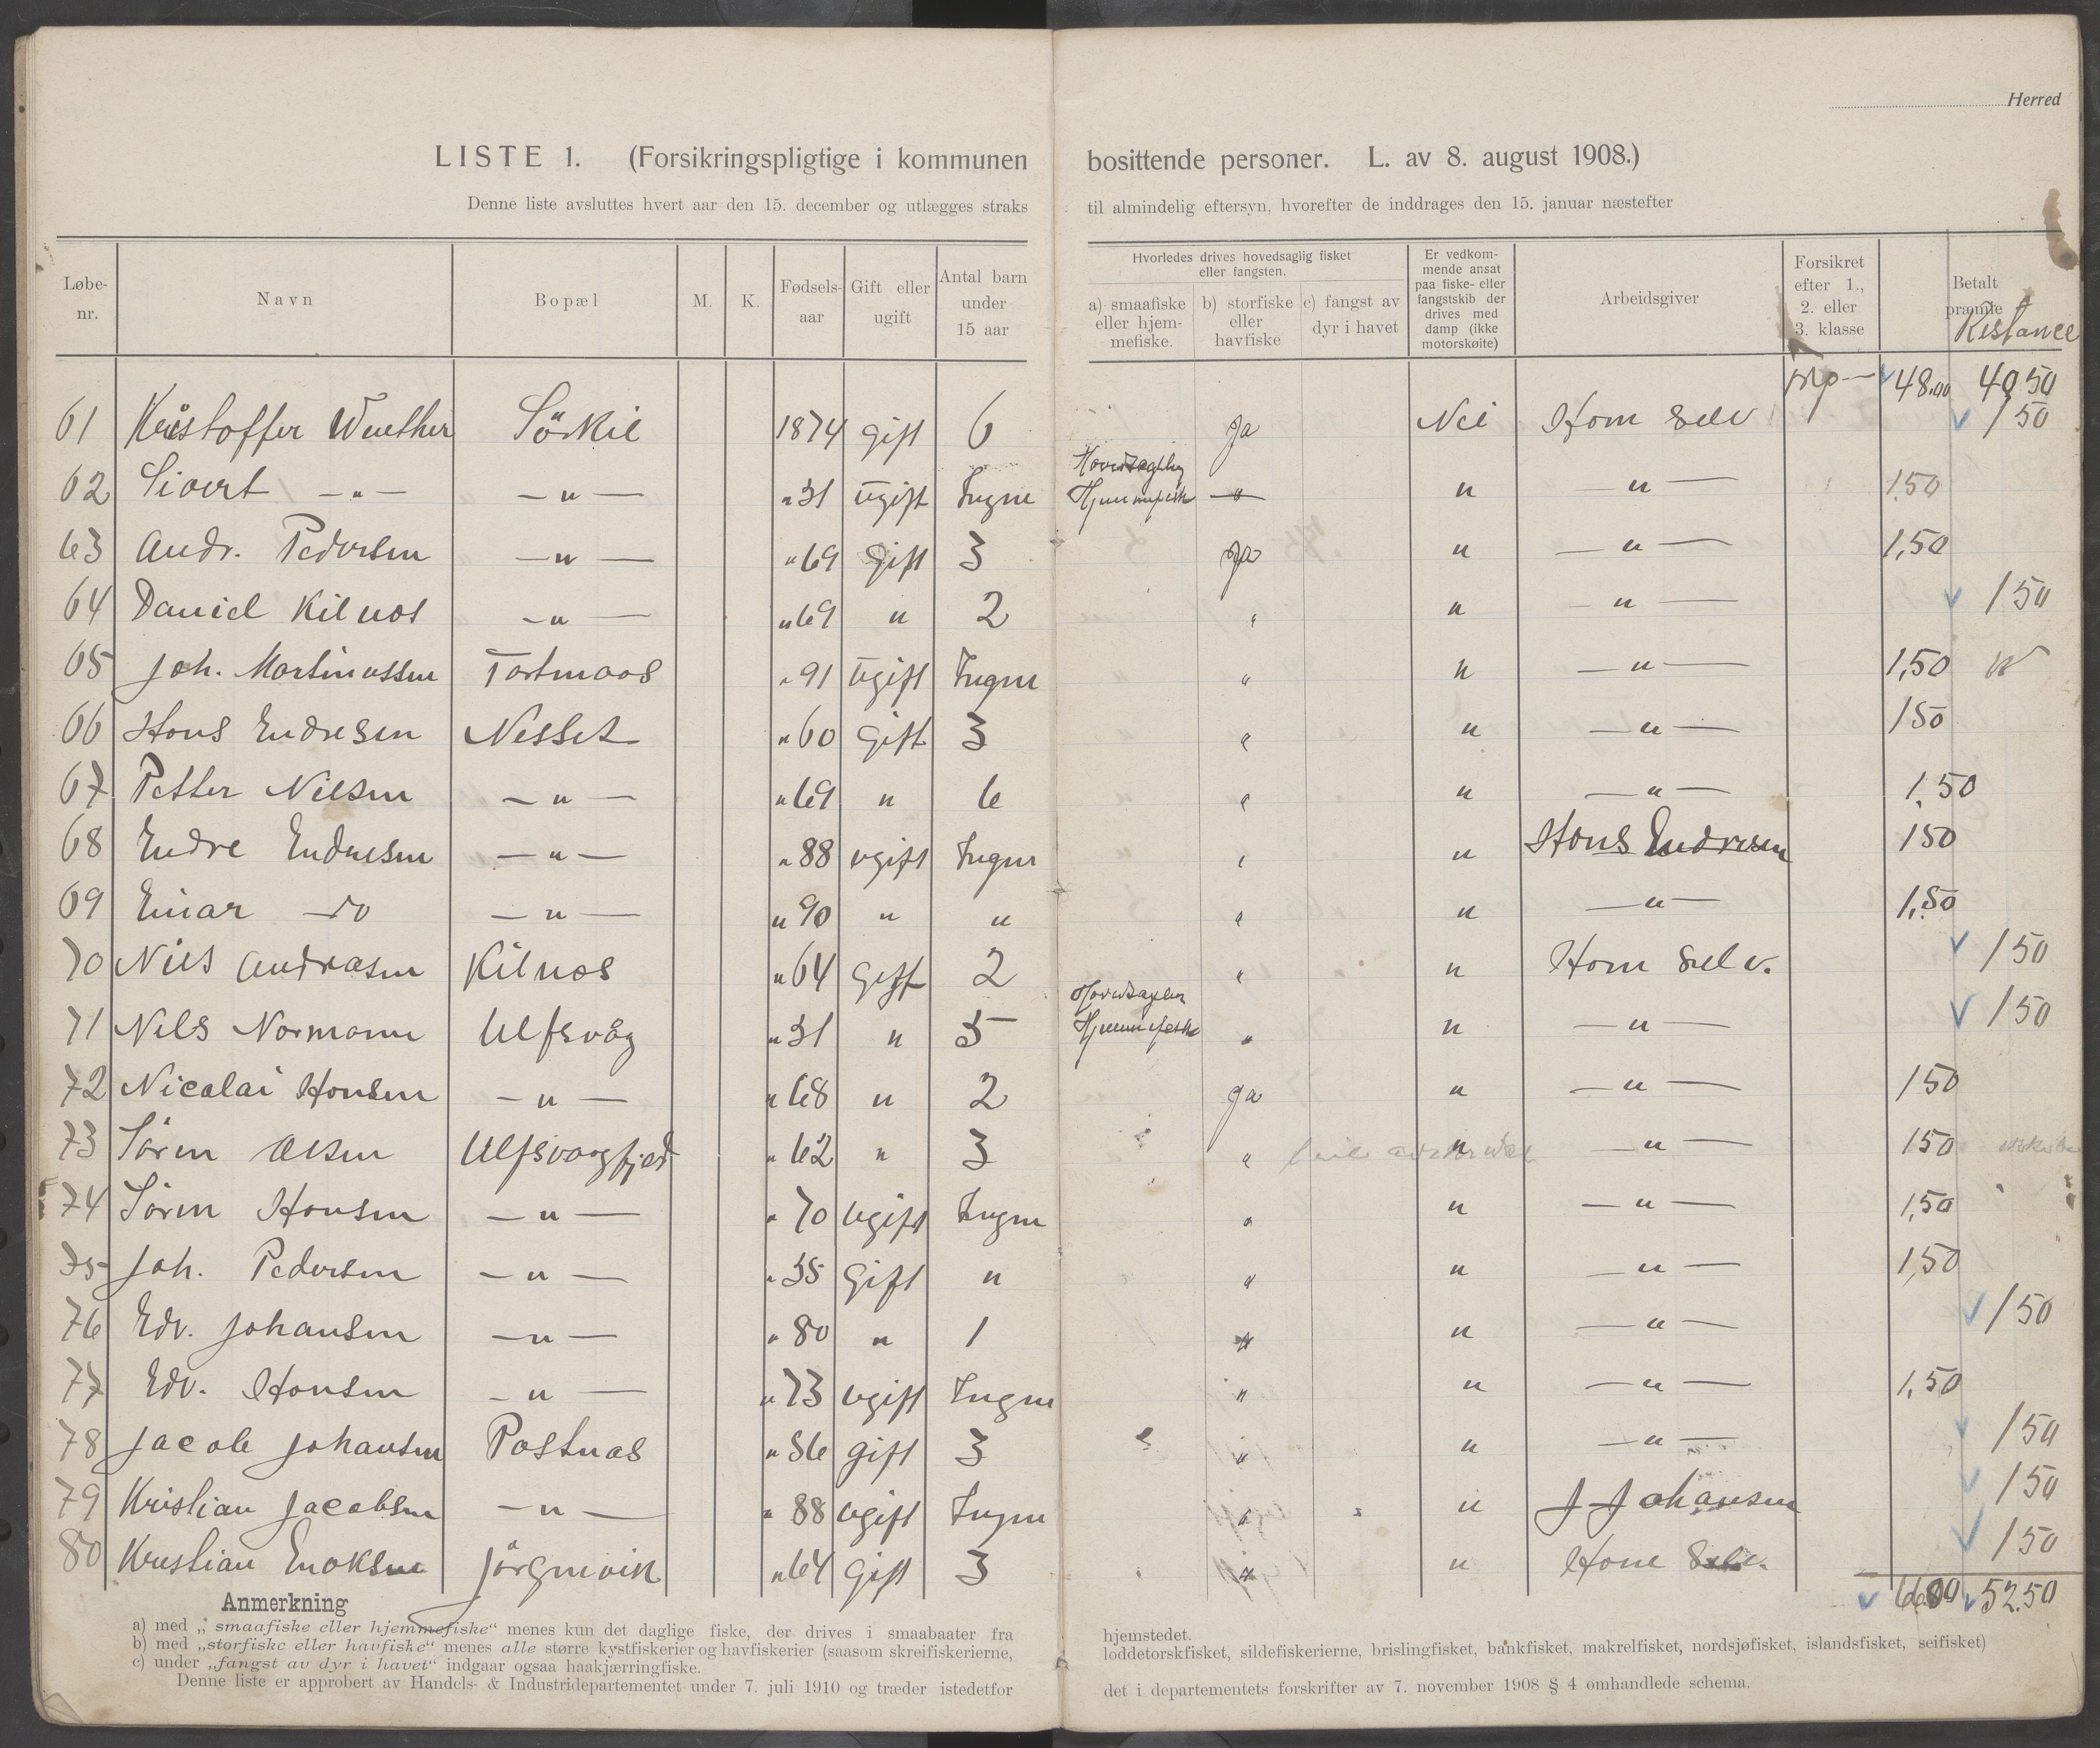 Herred
LISTE 1. (Forsikringspligtige i kommunen bosittende personer. L. av 8. august 1908.)
Denne liste avsluttes hvert aar den 15. december og utlægges straks til almindelig eftersyn, hvorefter de inddrages den 15. januar næstefter
Løbe-nr. Navn Bopæl M. K. Fødsels-aar Gift eller ugift Antal barn under 15 aar Hvorledes drives hovedsaglig fisket eller fangsten. a) smaafiske eller hjem-mefiske. b) storfiske eller havfiske c) fangst av dyr i havet Er vedkom-mende ansat paa fiske- eller fangstskib der drives med damp (ikke motorskøite) Arbeidsgiver Forsikret efter 1., 2. eller 3. klasse Betalt præmie Restance
48.00 40 50
61 Kristoffer Winther Sörkil 1874 gift 6 Ja Nei Ham selv 1 50
62 Sivert —"— —"— "51 Ugift Ingen Hovedsaglig Hjemmefisk " " —"— 1.50
63 Andr. Pedersen —"— "69 gift 3 Ja " —"— 1,50
64 Daniel Kilnes —"— "69 " 2 " " —"— 1 50
65 Joh. Martinussen "91 Ugift Ingen " " —"— 1,50
66 Hans Endresen Nesset "60 Gift 3 " " —"— 1 50
67 Petter Nilsen —"— "69 " 6 " " —"— 1.50
68 Endre Endresen —"— "88 ugift Ingen " " Hans Endresen 1 50
69 Einar —do —"— "90 " " " " —"— 1,50
70 Nils Andreasen Kilnes "64 Gift 2 " " Ham selv. 1 50
71 Nils Normann Ulfsvåg "51 " 5 Hovedsaglig Hjemmefiske " " —"— 1 50
72 Nicolai Hansen —"— "68 " 2 Ja " —"— 1 50
73 Sören Olsen Ulfsvaagfjeld "62 " 3 " " —"— 1 50
74 Sören Hansen —"— "70 Ugift Ingen " " —"— 1,50
75 Joh. Pedersen —"— "55 Gift " " " —"— 1,50
76 Edv. Johansen —"— "80 " 1 " " —"— 1 50
77 Edv. Hansen —"— "73 ugift Ingen " " —"— 1,50
78 Jacob Johansen Postnes "56 gift 3 " " —"— 1 50
79 Kristian Jacobsen —"— "88 ugift Ingen " " J Johansen 1 50
80 Kristian Enoksen Jörgenvik "64 Gift 3 " " Ham Selv. 1 50
52.50
Anmerkning
a) med „smaafiske eller hjemmefiske" menes kun det daglige fiske, der drives i smaabaater fra hjemstedet.
b) med „storfiske eller havfiske" menes alle større kystfiskerier og havfiskerier (saasom skreifiskerierne, loddetorskfisket, sildefiskerierne, brislingfisket, bankfisket, makrelfisket, nordsjøfisket, islandsfisket, seifisket)
c) under „fangst av dyr i havet" indgaar ogsaa haakjærringfiske.
Denne liste er approbert av Handels- & Industridepartementet under 7. juli 1910 og træder istedetfor det i departementets forskrifter av 7. november 1908 § 4 omhandlede schema.